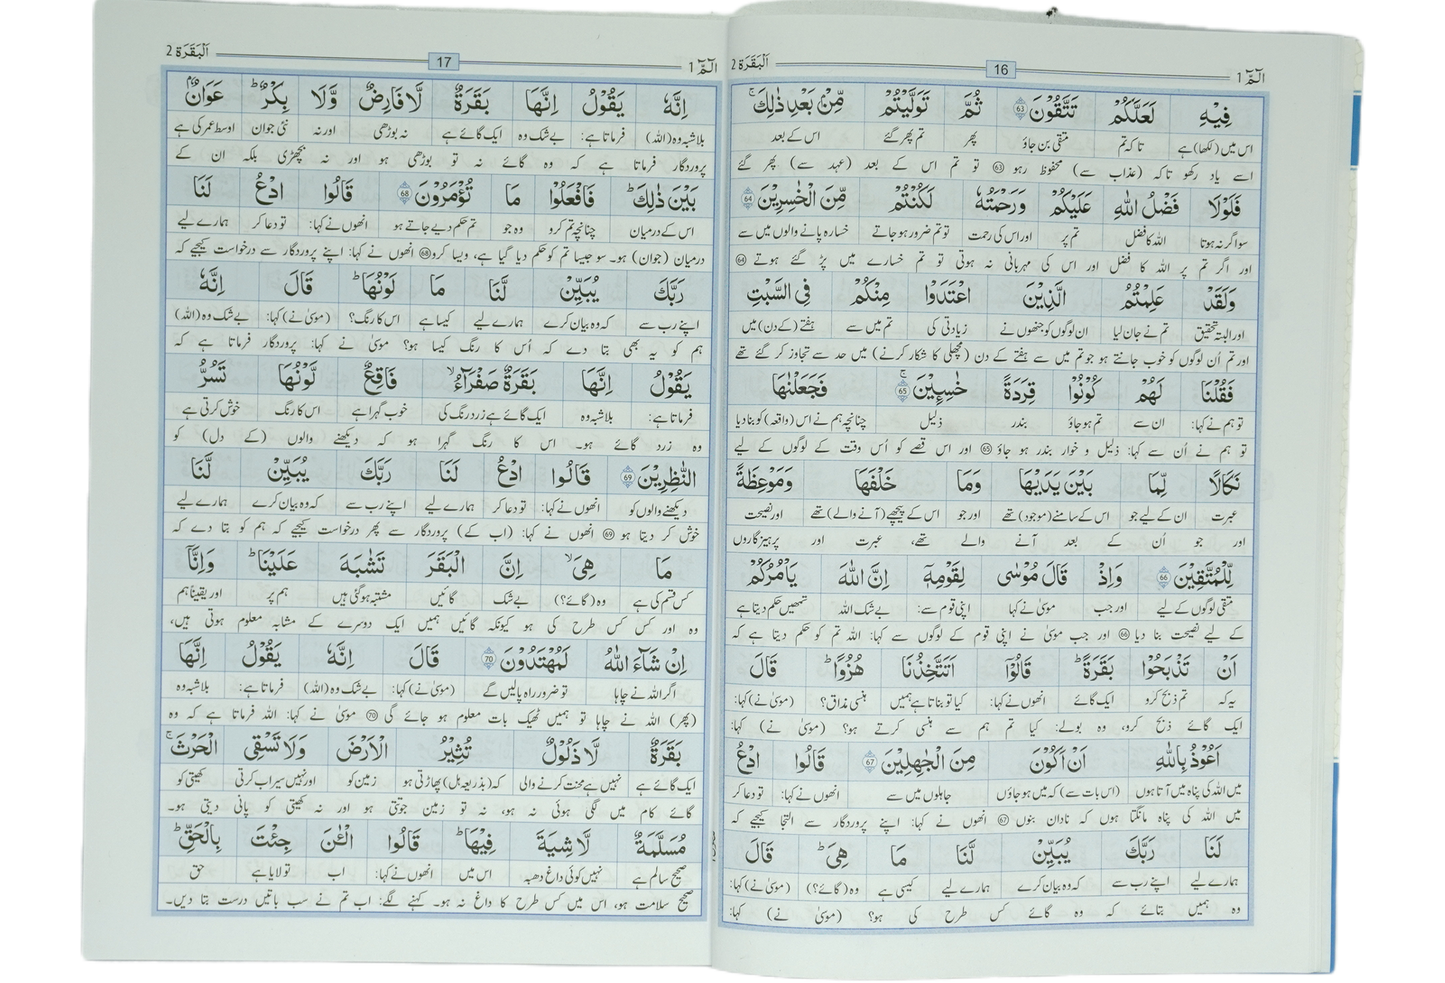 الٓمّٓ 1
16
اَلْبَقَرَة 2
فِيْهِ لَعَلَّكُمْ تَتَّقُوْنَ 63 ثُمَّ تَوَلَّيْتُمْ مِّنْۢ بَعْدِ ذٰلِكَ ۚ
اس میں (لکھا) ہے تاکہ تم متقی بن جاؤ پھر تم پھر گئے اس کے بعد
اسے یاد رکھو تاکہ (عذاب سے) محفوظ رہو 63 تو تم اس کے بعد (عہد سے) پھر گئے
فَلَوْلَا فَضْلُ اللّٰهِ عَلَيْكُمْ وَرَحْمَتُهٗ لَكُنْتُمْ مِّنَ الْخٰسِرِيْنَ 64
سو اگر نہ ہوتا اللہ کا فضل تم پر اور اس کی رحمت تو تم ضرور ہو جاتے خسارہ پانے والوں میں سے
اور اگر تم پر اللہ کا فضل اور اس کی مہربانی نہ ہوتی تو تم خسارے میں پڑ گئے ہوتے 64
وَلَقَدْ عَلِمْتُمُ الَّذِيْنَ اعْتَدَوْا مِنْكُمْ فِى السَّبْتِ
اور البتہ تحقیق تم نے جان لیا ان لوگوں کو جنھوں نے زیادتی کی تم میں سے ہفتے (کے دن) میں
اور تم اُن لوگوں کو خوب جانتے ہو جو تم میں سے ہفتے کے دن (مچھلی کا شکار کرنے) میں حد سے تجاوز کر گئے تھے
فَقُلْنَا لَهُمْ كُوْنُوْا قِرَدَةً خٰسِـِٕيْنَ ۚ 65 فَجَعَلْنٰهَا
تو ہم نے کہا: ان سے تم ہو جاؤ بندر ذلیل چنانچہ ہم نے اس (واقعہ) کو بنا دیا
تو ہم نے اُن سے کہا: ذلیل و خوار بندر ہو جاؤ 65 اور اس قصے کو اُس وقت کے لوگوں کے لیے
نَكَالًا لِّمَا بَيْنَ يَدَيْهَا وَمَا خَلْفَهَا وَمَوْعِظَةً
عبرت ان کے لیے جو اس کے سامنے (موجود) تھے اور جو اس کے پیچھے (آنے والے) تھے اور نصیحت
اور جو اُن کے بعد آنے والے تھے، عبرت اور پرہیزگاروں
لِّلْمُتَّقِيْنَ 66 وَاِذْ قَالَ مُوْسٰى لِقَوْمِهٖٓ اِنَّ اللّٰهَ يَاْمُرُكُمْ
متقی لوگوں کے لیے اور جب موسیٰ نے کہا اپنی قوم سے: بے شک اللہ تمھیں حکم دیتا ہے
کے لیے نصیحت بنا دیا 66 اور جب موسیٰ نے اپنی قوم کے لوگوں سے کہا: اللہ تم کو حکم دیتا ہے کہ
اَنْ تَذْبَحُوْا بَقَرَةً ۭ قَالُوْٓا اَتَتَّخِذُنَا هُزُوًا ۭ قَالَ
یہ کہ تم ذبح کرو ایک گائے انھوں نے کہا: کیا تو بناتا ہے ہمیں ہنسی مذاق؟ (موسیٰ نے) کہا:
ایک گائے ذبح کرو، وہ بولے: کیا تم ہم سے ہنسی کرتے ہو؟ (موسیٰ نے) کہا:
اَعُوْذُ بِاللّٰهِ اَنْ اَكُوْنَ مِنَ الْجٰهِلِيْنَ 67 قَالُوا ادْعُ
میں اللہ کی پناہ میں آتا ہوں (اس بات سے) کہ میں ہو جاؤں جاہلوں میں سے انھوں نے کہا: تو دعا کر
میں اللہ کی پناہ مانگتا ہوں کہ نادان بنوں 67 انھوں نے کہا: اپنے پروردگار سے التجا کیجیے کہ
لَنَا رَبَّكَ يُبَيِّنْ لَّنَا مَا هِىَ ۭ قَالَ
ہمارے لیے اپنے رب سے کہ وہ بیان کرے ہمارے لیے کیسی ہے وہ (گائے)؟ (موسیٰ نے) کہا:
وہ ہمیں بتائے کہ وہ گائے کس طرح کی ہو؟ (موسیٰ نے) کہا:
الٓمّٓ 1
17
اَلْبَقَرَة 2
اِنَّهٗ يَقُوْلُ اِنَّهَا بَقَرَةٌ لَّا فَارِضٌ وَّلَا بِكْرٌ ۭ عَوَانٌۢ
بلاشبہ وہ (اللہ) فرماتا ہے: بے شک وہ ایک گائے ہے نہ بوڑھی اور نہ نئی جوان اوسط عمر کی ہے
پروردگار فرماتا ہے کہ وہ گائے نہ تو بوڑھی ہو اور نہ بچھڑی بلکہ ان کے
بَيْنَ ذٰلِكَ ۭ فَافْعَلُوْا مَا تُؤْمَرُوْنَ 68 قَالُوا ادْعُ لَنَا
اس کے درمیان چنانچہ تم کرو وہ جو تم حکم دیے جاتے ہو انھوں نے کہا: تو دعا کر ہمارے لیے
درمیان (جوان) ہو۔ سو جیسا تم کو حکم دیا گیا ہے، ویسا کرو 68 انھوں نے کہا: اپنے پروردگار سے درخواست کیجیے کہ
رَبَّكَ يُبَيِّنْ لَّنَا مَا لَوْنُهَا ۭ قَالَ اِنَّهٗ
اپنے رب سے کہ وہ بیان کرے ہمارے لیے کیسا ہے اس کا رنگ؟ (موسیٰ نے) کہا: بے شک وہ (اللہ)
ہم کو یہ بھی بتا دے کہ اُس کا رنگ کیسا ہو؟ موسیٰ نے کہا: پروردگار فرماتا ہے کہ
يَقُوْلُ اِنَّهَا بَقَرَةٌ صَفْرَآءُ ۙ فَاقِعٌ لَّوْنُهَا تَسُرُّ
فرماتا ہے: بلاشبہ وہ ایک گائے ہے زرد رنگ کی خوب گہرا ہے اس کا رنگ خوش کرتی ہے
وہ زرد گائے ہو۔ اس کا رنگ گہرا ہو کہ دیکھنے والوں (کے دل) کو
النّٰظِرِيْنَ 69 قَالُوا ادْعُ لَنَا رَبَّكَ يُبَيِّنْ لَّنَا
دیکھنے والوں کو انھوں نے کہا: تو دعا کر ہمارے لیے اپنے رب سے کہ وہ بیان کرے ہمارے لیے
خوش کر دیتا ہو 69 انھوں نے کہا: (اب کے) پروردگار سے پھر درخواست کیجیے کہ ہم کو بتا دے کہ
مَا هِىَ ۙ اِنَّ الْبَقَرَ تَشٰبَهَ عَلَيْنَا ۭ وَاِنَّآ
کس قسم کی ہے وہ (گائے)؟ بے شک گائیں مشتبہ ہو گئی ہیں ہم پر اور یقیناً ہم
وہ اور کس کس طرح کی ہو کیونکہ گائیں ہمیں ایک دوسرے کے مشابہ معلوم ہوتی ہیں،
اِنْ شَآءَ اللّٰهُ لَمُهْتَدُوْنَ 70 قَالَ اِنَّهٗ يَقُوْلُ اِنَّهَا
اگر اللہ نے چاہا تو ضرور راہ پالیں گے (موسیٰ نے) کہا: بے شک وہ (اللہ) فرماتا ہے: بلاشبہ وہ
(پھر) اللہ نے چاہا تو ہمیں ٹھیک بات معلوم ہو جائے گی 70 موسیٰ نے کہا: اللہ فرماتا ہے کہ وہ
بَقَرَةٌ لَّا ذَلُوْلٌ تُثِيْرُ الْاَرْضَ وَلَا تَسْقِى الْحَرْثَ ۚ
ایک گائے ہے نہیں ہے محنت کرنے والی کہ (بذریعہ ہل) پھاڑتی ہو زمین کو اور نہیں سیراب کرتی کھیتی کو
گائے کام میں لگی ہوئی نہ ہو، نہ تو زمین جوتتی ہو اور نہ کھیتی کو پانی دیتی ہو۔
مُسَلَّمَةٌ لَّا شِيَةَ فِيْهَا ۭ قَالُوا الْـٰٔنَ جِئْتَ بِالْحَقِّ ۭ
صحیح سالم ہے نہیں کوئی داغ دھبہ اس میں انھوں نے کہا: اب تو لایا ہے حق
صحیح سلامت ہو، اس میں کس طرح کا داغ نہ ہو۔ کہنے لگے: اب تم نے سب باتیں درست بتا دیں۔